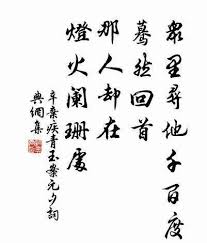 眾里尋他千百度
驀然回首
那人却在
燈火闌珊處
辛棄疾青玉案元夕詞